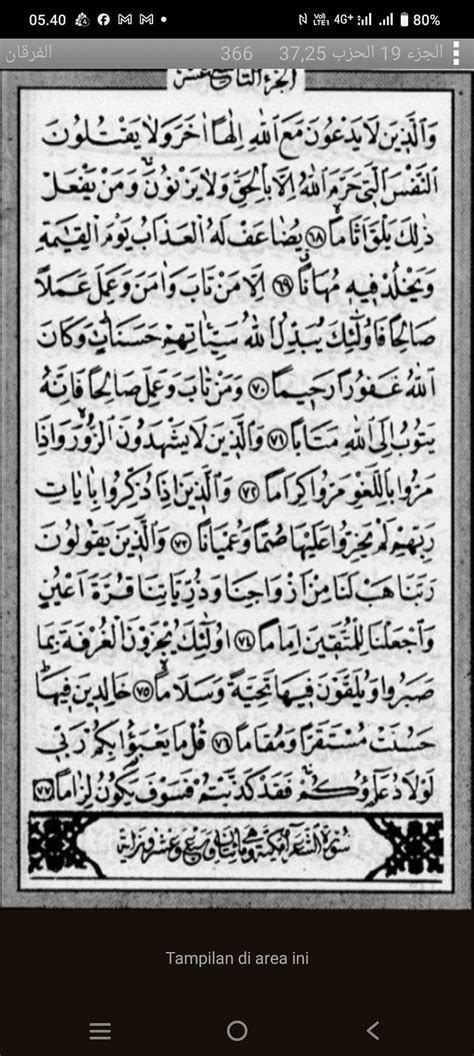 05.40 VoD LTE1 4G+ 80%
الجزء 19 الحزب 37,25 366 الفرقان
الجزء التاسع عشر
وَالَّذِينَ لَا يَدْعُونَ مَعَ اللّٰهِ اِلٰهًا اٰخَرَ وَلَا يَقْتُلُونَ
النَّفْسَ الَّتِي حَرَّمَ اللّٰهُ اِلَّا بِالْحَقِّ وَلَا يَزْنُونَ وَمَنْ يَفْعَلْ
ذٰلِكَ يَلْقَ اَثَامًا ﴿٦٨﴾ يُضَاعَفْ لَهُ الْعَذَابُ يَوْمَ الْقِيٰمَةِ
وَيَخْلُدْ فِيهِ مُهَانًا ﴿٦٩﴾ اِلَّا مَنْ تَابَ وَاٰمَنَ وَعَمِلَ عَمَلًا
صَالِحًا فَاُولٰئِكَ يُبَدِّلُ اللّٰهُ سَيِّـَٔاتِهِمْ حَسَنَاتٍ وَكَانَ
اللّٰهُ غَفُورًا رَحِيمًا ﴿٧٠﴾ وَمَنْ تَابَ وَعَمِلَ صَالِحًا فَاِنَّهُ
يَتُوبُ اِلَى اللّٰهِ مَتَابًا ﴿٧١﴾ وَالَّذِينَ لَا يَشْهَدُونَ الزُّورَ وَاِذَا
مَرُّوا بِاللَّغْوِ مَرُّوا كِرَامًا ﴿٧٢﴾ وَالَّذِينَ اِذَا ذُكِّرُوا بِاٰيَاتِ
رَبِّهِمْ لَمْ يَخِرُّوا عَلَيْهَا صُمًّا وَعُمْيَانًا ﴿٧٣﴾ وَالَّذِينَ يَقُولُونَ
رَبَّنَا هَبْ لَنَا مِنْ اَزْوَاجِنَا وَذُرِّيَّاتِنَا قُرَّةَ اَعْيُنٍ
وَاجْعَلْنَا لِلْمُتَّقِينَ اِمَامًا ﴿٧٤﴾ اُولٰئِكَ يُجْزَوْنَ الْغُرْفَةَ بِمَا
صَبَرُوا وَيُلَقَّوْنَ فِيهَا تَحِيَّةً وَسَلَامًا ﴿٧٥﴾ خَالِدِينَ فِيهَا
حَسُنَتْ مُسْتَقَرًّا وَمُقَامًا ﴿٧٦﴾ قُلْ مَا يَعْبَؤُا بِكُمْ رَبِّي
لَوْلَا دُعَاؤُكُمْ فَقَدْ كَذَّبْتُمْ فَسَوْفَ يَكُونُ لِزَامًا ﴿٧٧﴾
سورة الشعراء مكية وهي مائتان وسبع وعشرون اية
Tampilan di area ini